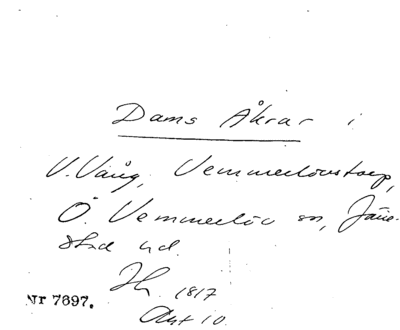 Dams Åkrar i
V. Vång, Vemmerlövstorp,
Ö. Vemmerlöv sn, Järre-
stad hd.
1817
Akt 10.
Nr 7697.